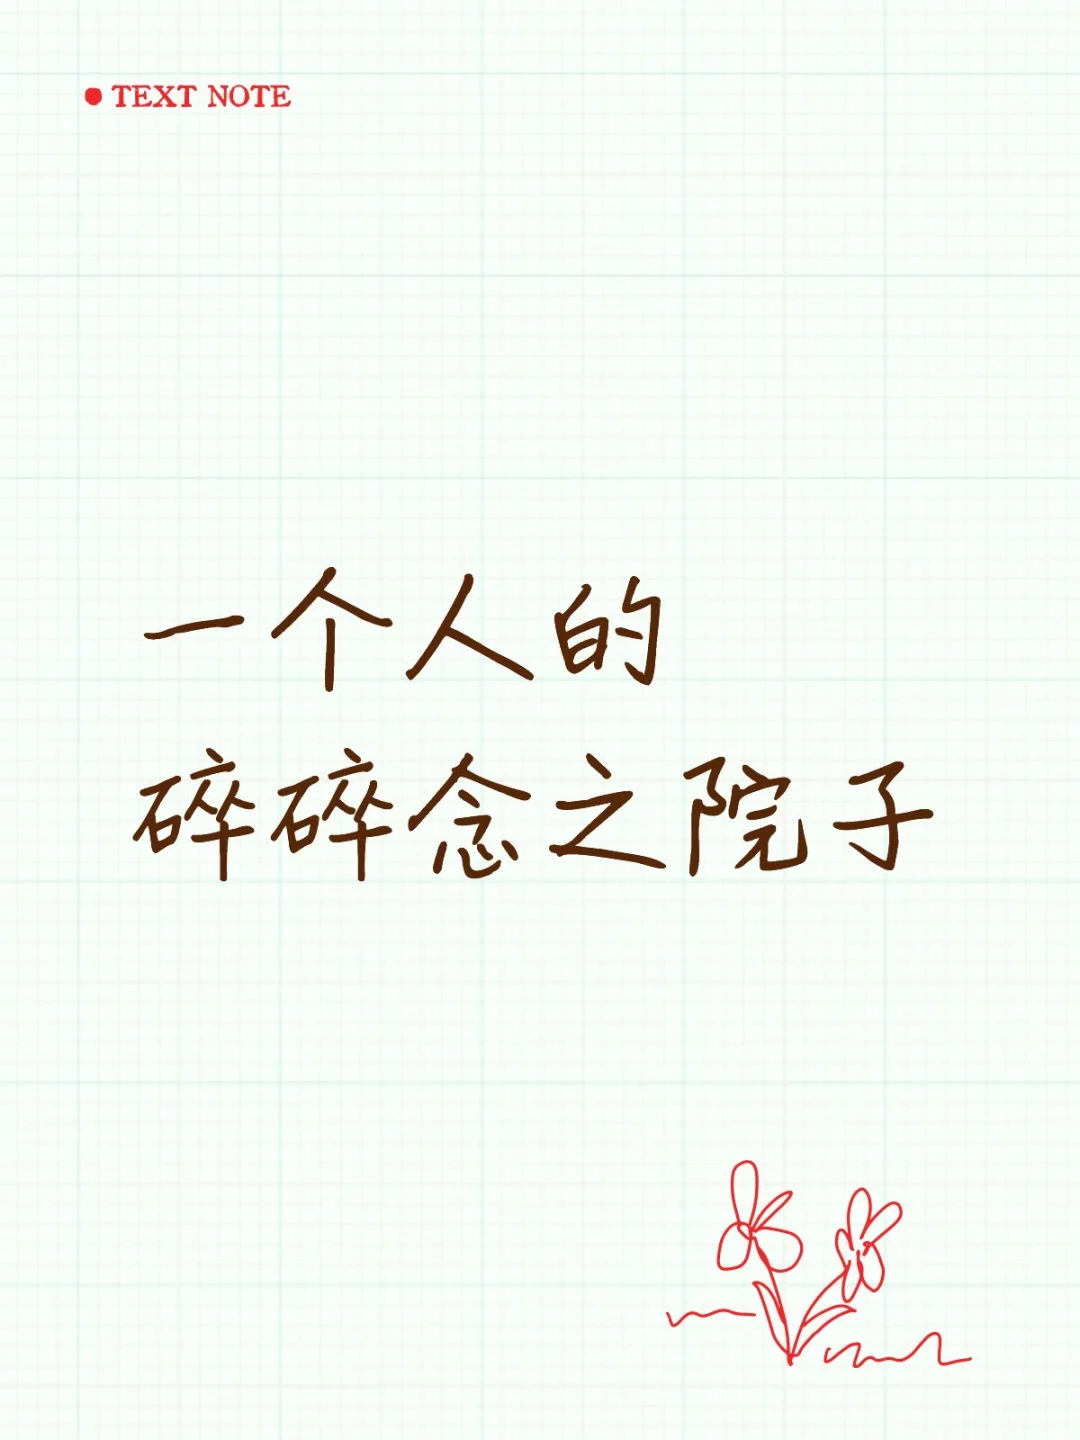 TEXT NOTE
一个人的
碎碎念之院子